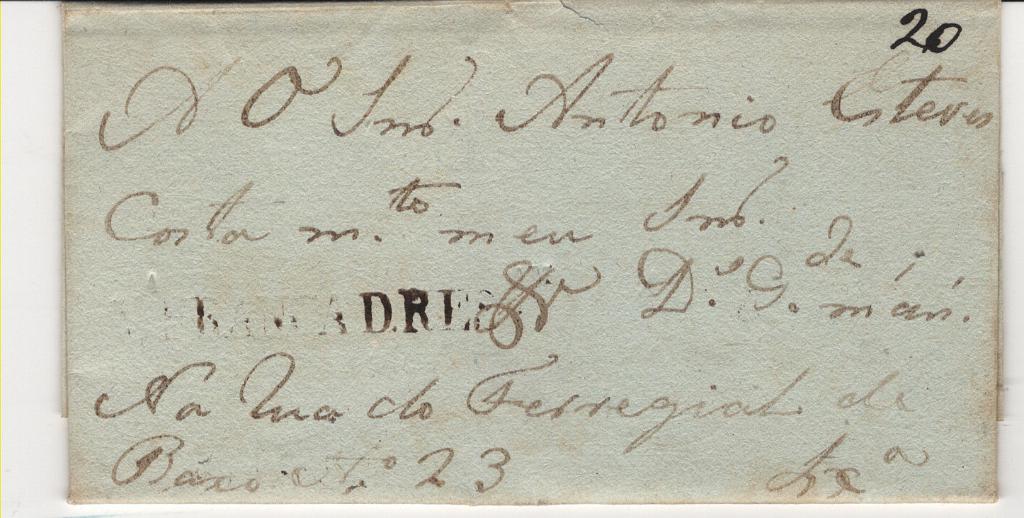 20
A O Snr. Antonio Esteves
Costa m.to meu Snr.
D.s G.de m.
ADRE
Na Rua do Ferregial de
Baxo N.o 23 Lxa